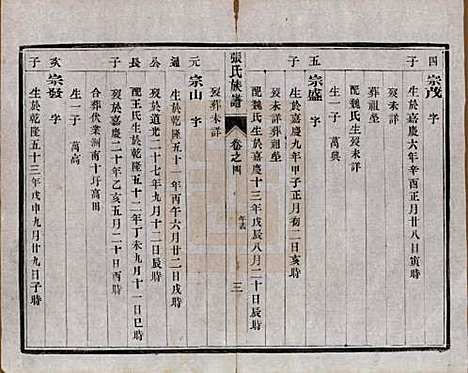 四 宗茂 字
子 生於嘉慶六年辛酉正月廿八日寅時
歿未詳
葬祖塋
配魏氏生歿未詳
五 宗盛 字
子 生於嘉慶九年甲子正月初二日亥時
歿未詳葬祖塋
配魏氏生於嘉慶十三年戊辰八月二十日辰時
歿葬未詳 生一子 萬興
張氏族譜 卷之四 三
元 宗山 字
通 生於乾隆五十一年丙午六月廿二日戌時
公 歿於道光二十七年九月十二日辰時
長 配王氏生於乾隆五十二年丁未九月十一日巳時
子 歿於嘉慶二十年乙亥五月二十日酉時
合葬伏業洲南十圩高田
生一子 萬高
亥 宗發 字
子 生於乾隆五十三年戊申九月廿九日子時